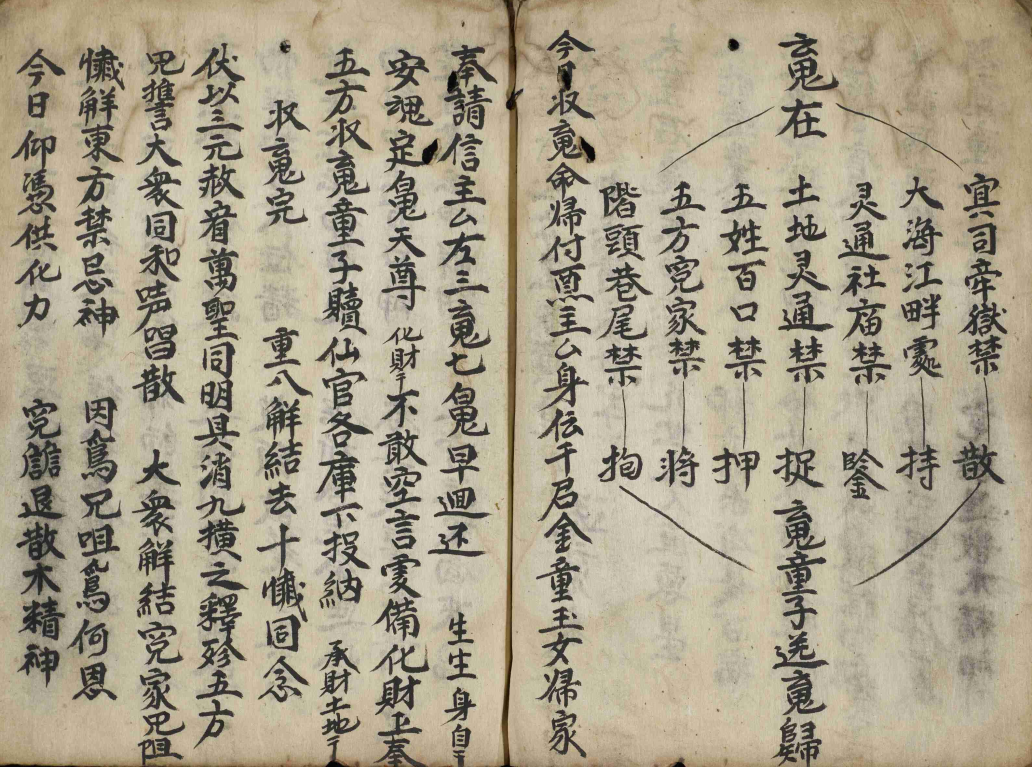 在
冥司牢獄禁散
大海江畔處持
灵通社庙禁
土地灵通禁捉
五姓百口禁押
五方冤家禁将
階頭巷尾禁拘
童子送 歸
今日收 命帰付 主厶身伝千后金童玉女帰家
奉請信主厶左三 七 早迴还 生生身自
安魂定 天尊 化財 不敢空言虔備化財上奉
五方收 童子贖仙官各庫下投納 承財土地
收 完 重八解結去十懺同念
伏以三元赦宥萬聖同明具消九横之釋殄五方
咒誓大衆同和 散 大衆解結冤家咒咀
懺解東方禁忌神 因為咒咀為何恩
今日仰憑供化力 冤 退散木精神